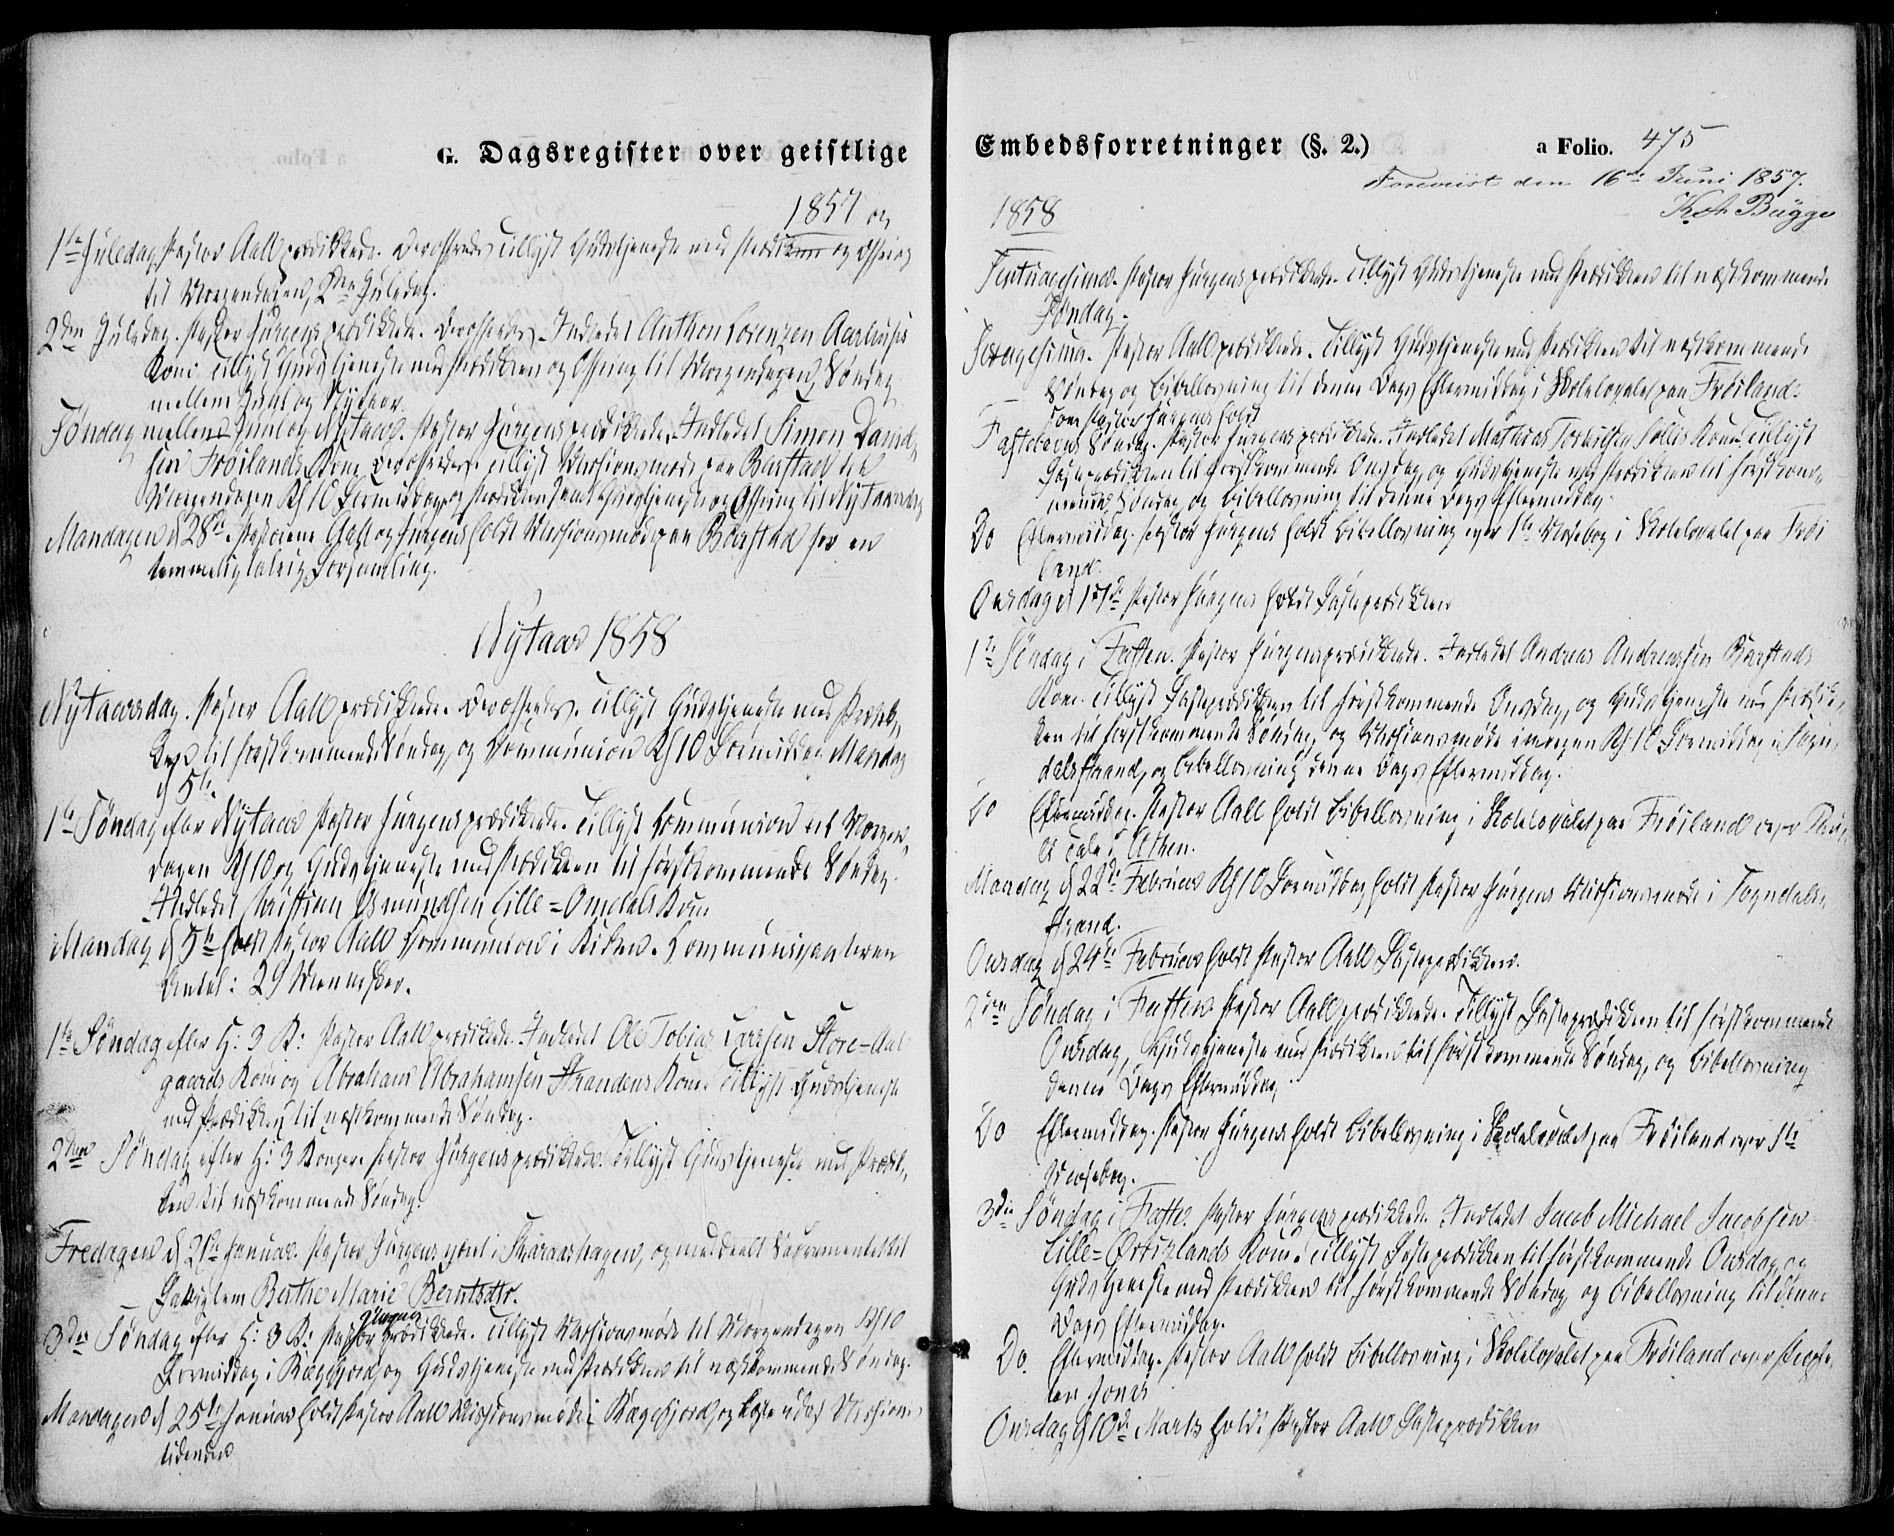 G. Dagsregister over geistlige
1857 og
1ste Juledag, Pastor Aall prædikede. Tillyst Gudstjeneste med Prædiken og Offring
til Morgendagen, 2den Juledag.
2den Juledag. Pastor Jürgens prædikede. Indledet Anthon Lorenzen Aarhuus
Kone. Tillyst Gudstjeneste med Prædiken og Offring til Morgendagen, Søndag
mellem Juul og Nytaar.
Søndag mellem Juul og Nytaar. Pastor Jürgens prædikede. Indledet Simon Davids
sen Frøilands Kone. Tillyst Missionsmøde paa Barstad til
Morgendagen Kl 10 Formiddag, og Gudstjeneste og Offring til Nytaarsdag
Mandagen d 28de Pastorerne Aall og Jürgens holdt Missionsmøde paa Barstad for en
temmelig talrig Forsamling.
Nytaar 1858
Nytaarsdag. Pastor Aall prædikede. Tillyst Gudstjeneste med Prædik,
ken til førstkommende Søndag, og Communion Kl 10 Formiddag Mandag
d 5te
1ste Søndag efter Nytaar Pastor Jürgens prædikede. Tillyst Communion til Morgen,
dagen Kl 10 og Gudstjeneste med Prædiken til førstkommende Søndag.
Indledet Christian Osmundsen Lille=Omdals Kone
Mandag d 5te holdt Pastor Aall Communion i Kirken. Communicanternes
Antal: 29 Mennesker.
1ste Søndag efter H: 3 K: Pastor Aall prædikede. Indledet Ole Tobias Larsen Store=Aal
gaards Kone og Abraham Abrahamsen Strandens Kone. Tillyst Gudstjeneste
med Prædiken til næstkommende Søndag.
2den Søndag efter H: 3 Konger. Pastor Jürgens prædikede. Tillyst Gudstjeneste med Prædik,
ken til næstkommende Søndag.
Fredagen d 21de Januar. Pastor Jürgens i og meddeelt Sacramentet til
Berthe Marie Berntsdtr.
3die Søndag efter H: 3 K: Pastor Jürgens prædikede. Tillyst Missionsmøde til Morgendagen Kl 10
Formiddag i Reggefjord, og Gudstjeneste med Prædiken til næstkommende Søndag.
Mandagen d 25de Januar holdt Pastor Aall Missionsmøde i Reggefjord, og læste ud af Missions
tidende
Embedsforretninger (§. 2.)
a Folio. 475
Foreviist den 16de Juni 1857.
Bugge
1858
Septuagesima. Pastor Jürgens prædikede. Tillyst Gudstjeneste med Prædiken til næstkommende
Søndag.
Sexagesima. Pastor Aall prædikede. Tillyst Gudstjeneste med Prædiken til næstkommende
Søndag og Bibellæsning til denne Dags Eftermiddag i Skolelocalet paa Frøiland.
som Pastor Jürgens holdt
Fastelavns Søndag. Pastor Jürgens prædikede. Indledet Mathias Torkilsen Sølis Kone. Tillyst
Fasteprædiken til førstkommende Onsdag, og Gudstjeneste med Prædiken til førstkom,
mende Søndag og Bibellæsning til denne Dags Eftermiddag.
Do Eftermiddag. Pastor Jürgens holdt Bibellæsning over 1ste Mosebog i Skolelocalet paa Frøi
land.
Onsdag d 17de Pastor Jürgens holdt Fasteprædiken
1ste Søndag i Fasten. Pastor Jürgens prædikede. Indledet Andreas Andreassen Barstads
Kone. Tillyst Fasteprædiken til førstkommende Onsdag, og Gudstjeneste med Prædi,
ken til førstkommende Søndag, og Missionsmøde imorgen Kl 10 Formiddag i Sogn,
dalsstrand, og Bibellæsning denne Dags Eftermiddag.
Do Eftermiddag. Pastor Aall holdt Bibellæsning i Skolelocalet paa Frøiland over Pau,
li Tale i Athen.
Mandag d 22de Februar Kl 10 Formiddag holdt Pastor Jürgens Missionsmøde i Sogndals,
strand.
Onsdag d 24de Februar holdt Pastor Aall Fasteprædiken.
2den Søndag i Fasten Pastor Aall prædikede. Tillyst Fasteprædiken til førstkommende
Onsdag, Gudstjeneste med Prædiken til førstkommende Søndag, og Bibellæsning
denne Dags Eftermiddag.
Do Eftermiddag. Pastor Jürgens holdt Bibellæsning i Skolelocalet paa Frøiland over 1ste
Mosebog.
3die Søndag i Faste. Pastor Jürgens prædikede. Indledet Jacob Michael Jacobsen
Lille= Kone. Tillyst Fasteprædiken til førstkommende Onsdag, og
Gudstjeneste med Prædiken til førstkommende Søndag og Bibellæsning til denne
Dags Eftermiddag.
Do. Eftermiddag. Pastor Aall holdt Bibellæsning i Skolelocalet paa Frøiland over Prophe,
ten Jonas
Onsdag d 10de Marts holdt Pastor Aall Fasteprædiken